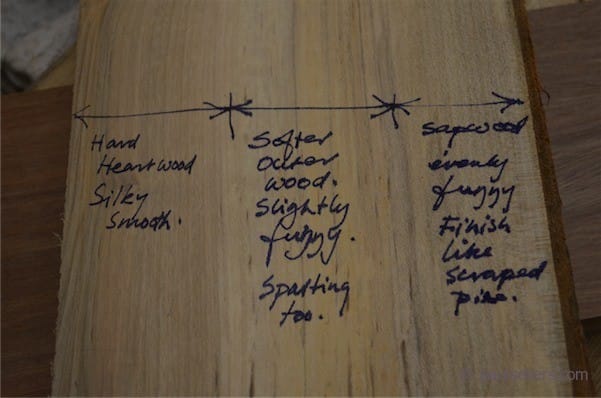 Hard
Heartwood
Silky
Smooth.
Softer
outer
wood.
Slightly
fuzzy.
Spalting
too.
Sapwood
evenly
fuzzy
Finish
like
scraped
pine.